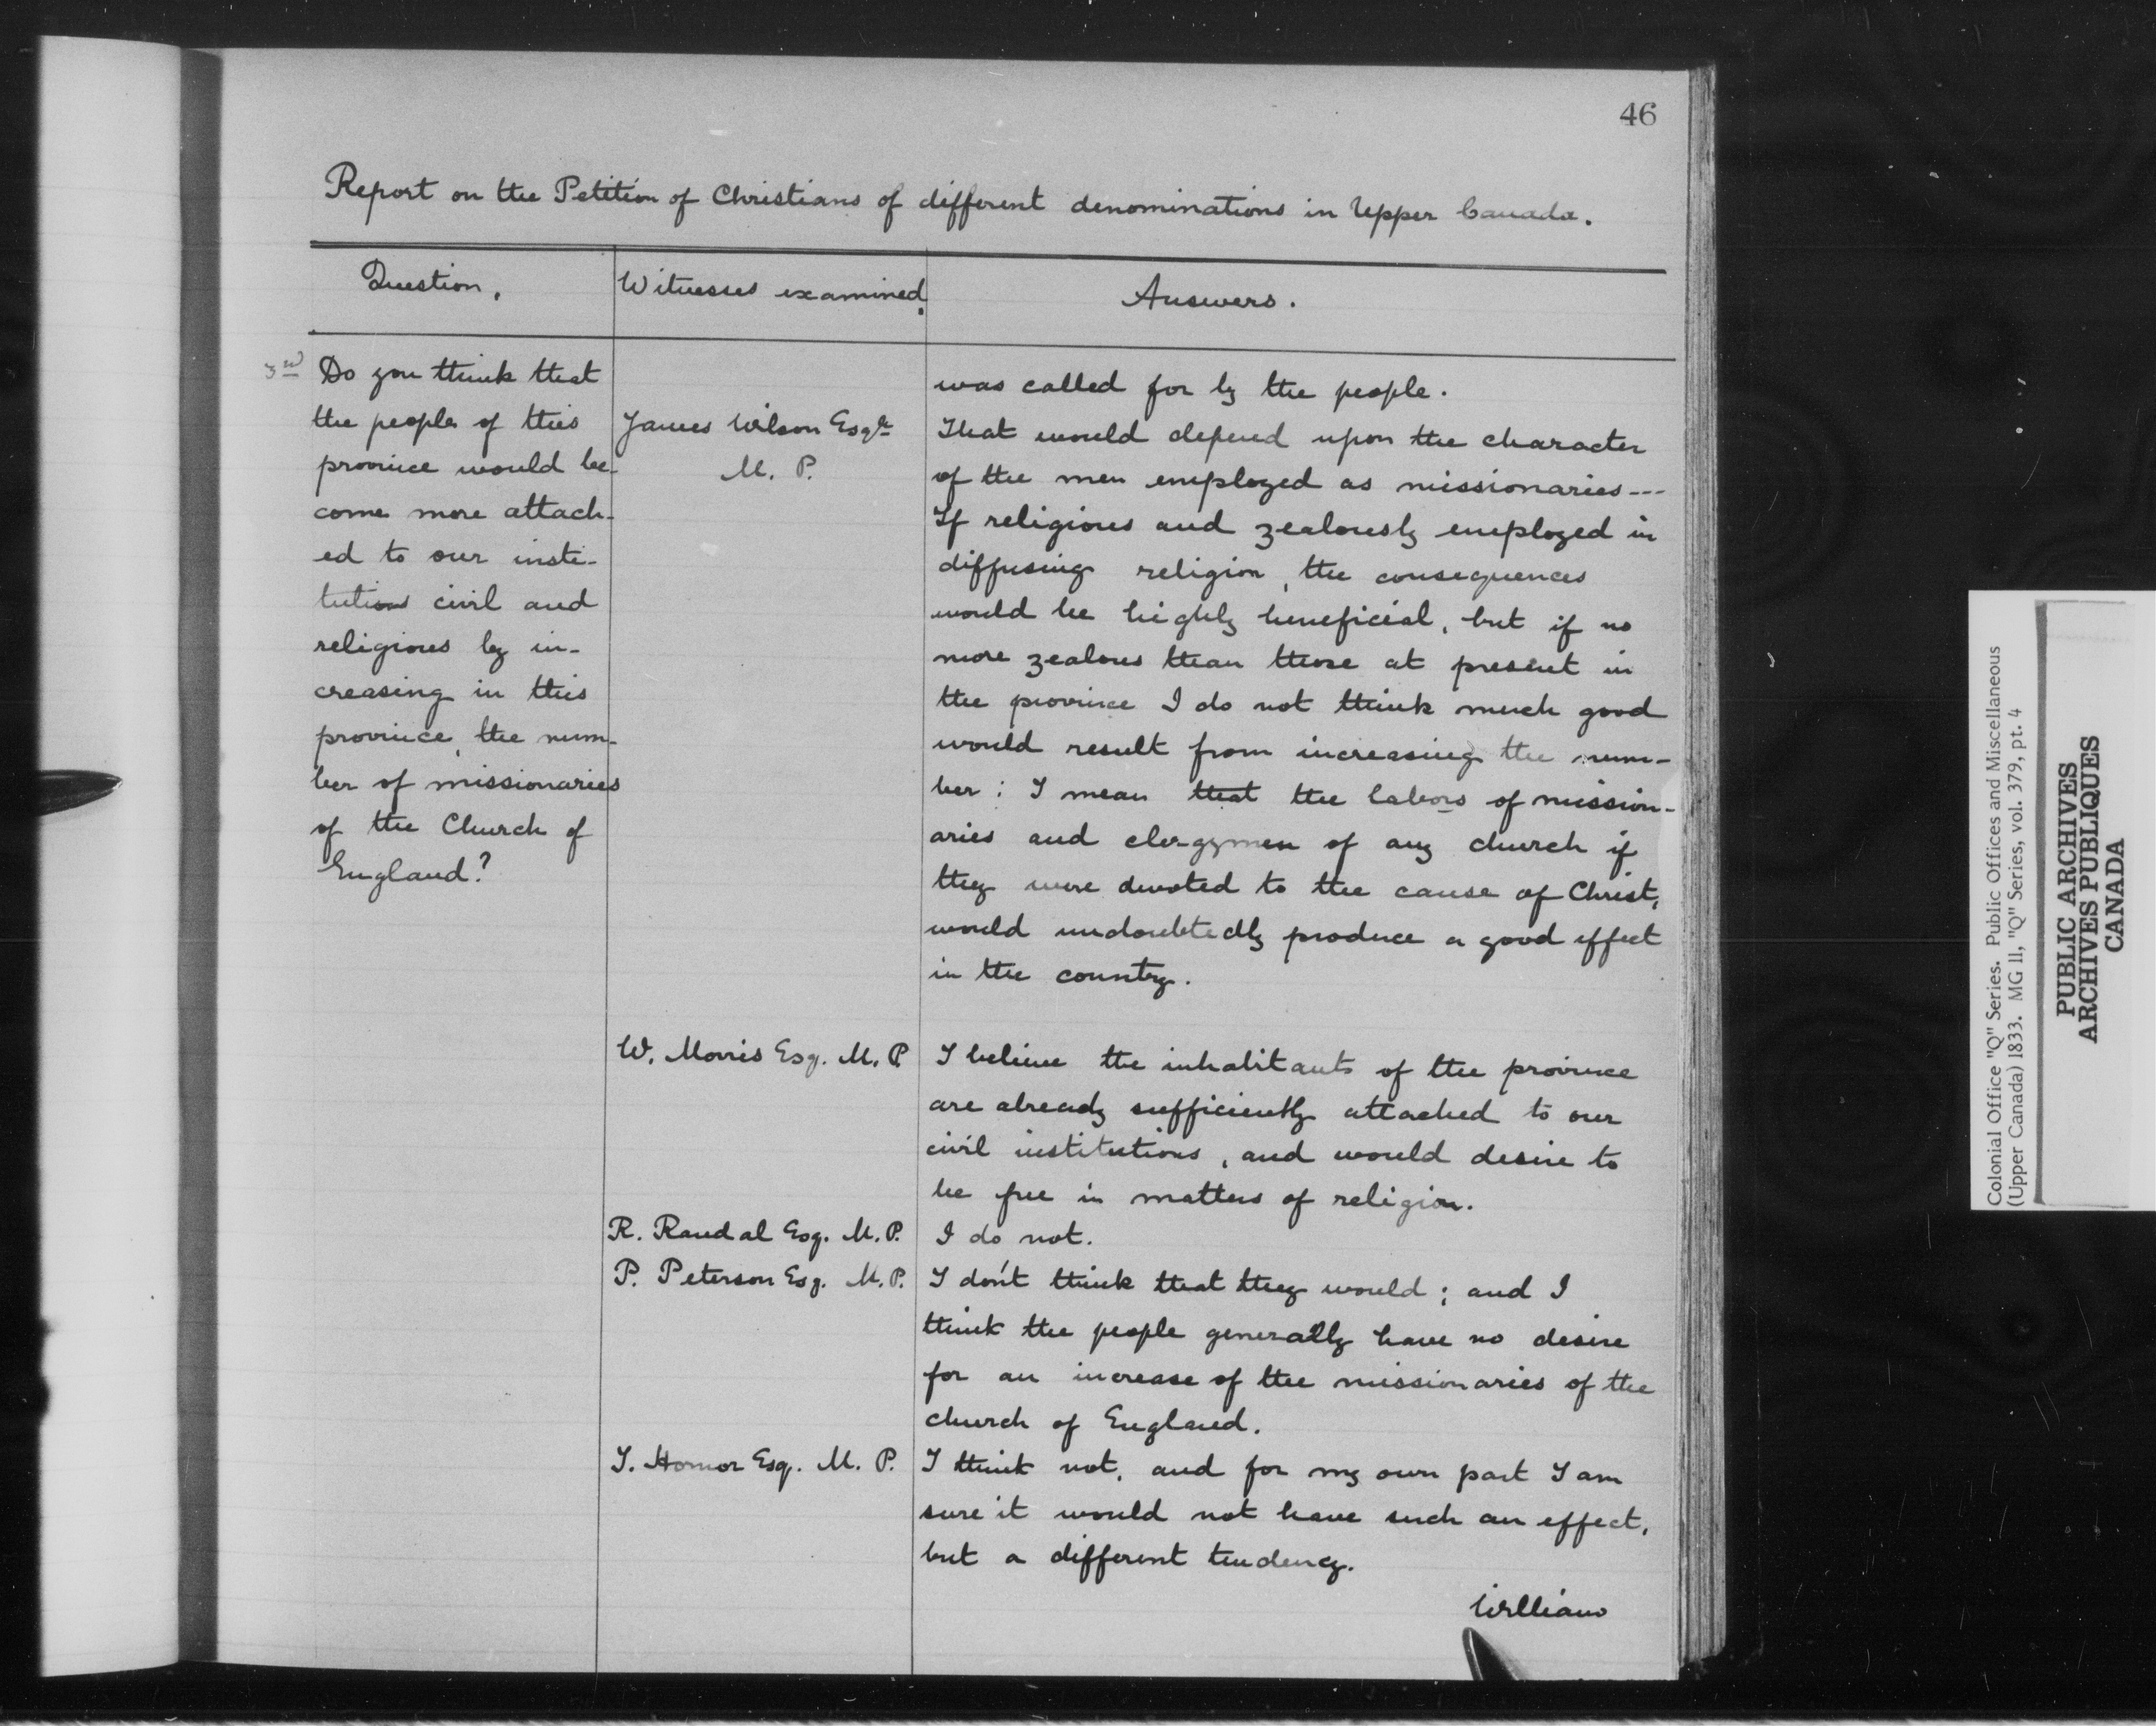 46
Report on the Petition of Christians of different denominations in Upper Canada.
Question.
Witnesses examined.
Answers.
Do you think that
the people of this
province would be-
come more attach-
ed to our insti-
tutions civil and
religious by in-
creasing in this
province, the num-
ber of missionaries
of the Church of
England?
was called for by the people.
James Wilson Esqre
M. P.
That would depend upon the character
of the men employed as missionaries---
If religious and zealously employed in
diffusing religion, the consequences
would be highly beneficial, but if no
more zealous than those at present in
the province I do not think much good
would result from increasing the num-
ber: I mean that the labors of mission-
aries and clergymen of any church if
they were devoted to the cause of Christ,
would undoubtedly produce a good effect
in the country.
W. Morris Esq. M. P.
I believe the inhabitants of the province
are already sufficiently attached to our
civil institutions, and would desire to
be free in matters of religion.
R. Randal Esq. M. P.
I do not.
P. Peterson Esq. M. P.
I don't think that they would; and I
think the people generally have no desire
for an increase of the missionaries of the
church of England.
T. Hornor Esq. M. P.
I think not, and for my own part I am
sure it would not have such an effect,
but a different tendency.
William
Colonial Office "Q" Series. Public Offices and Miscellaneous
(Upper Canada) 1833. MG 11, "Q" Series, vol. 379, pt. 4
PUBLIC ARCHIVES
ARCHIVES PUBLIQUES
CANADA